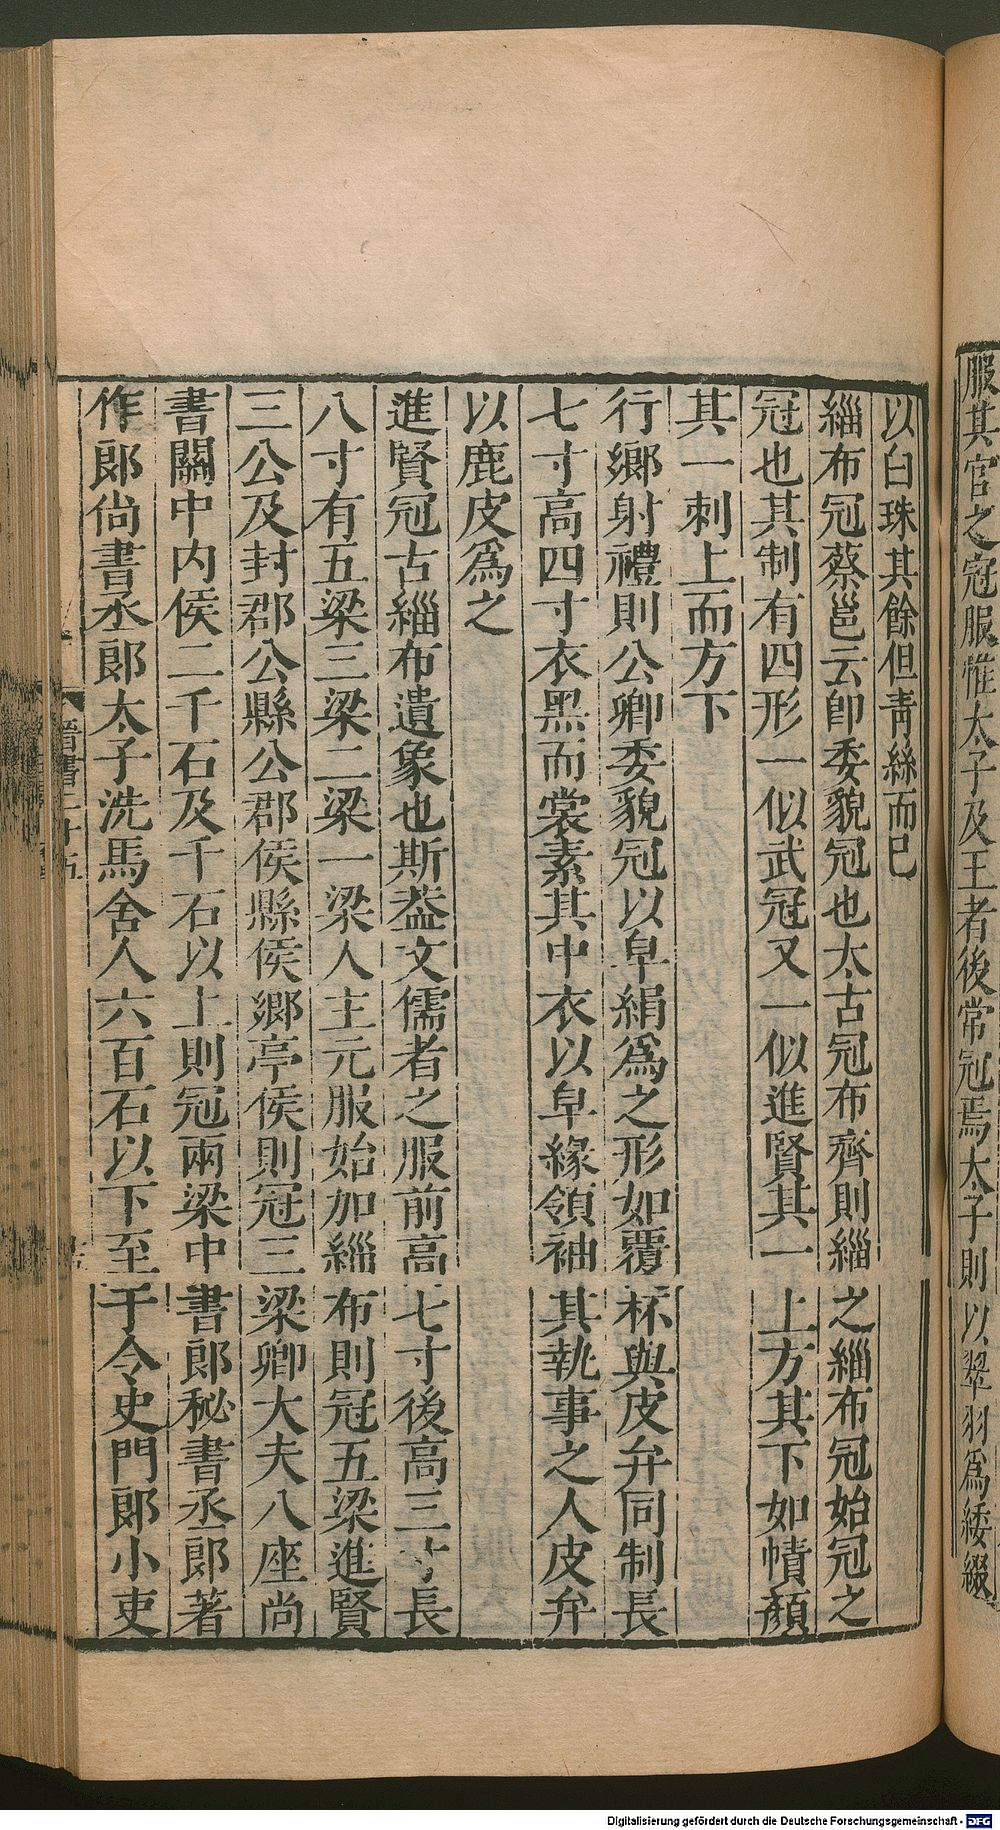 服其官之冠服惟太子及王者後常冠焉太子則以翠羽爲緌綴
以白珠其餘但青絲而已
緇布冠蔡邕云卽委貌冠也太古冠布齊則緇之緇布冠始冠之
冠也其制有四形一似武冠又一似進賢其一上方其下如幘顏
其一刺上而方下
行鄉射禮則公卿委貌冠以皁絹爲之形如覆杯與皮弁同制長
七寸高四寸衣黑而裳素其中衣以皁緣領袖其執事之人皮弁
以鹿皮爲之
進賢冠古緇布遺象也斯蓋文儒者之服前高七寸後高三寸長
八寸有五梁三梁二梁一梁人主元服始加緇布則冠五梁進賢
三公及封郡公縣公郡侯縣侯鄉亭侯則冠三梁卿大夫八座尚
書關中內侯二千石及千石以上則冠兩梁中書郎秘書丞郎著
作郎尚書丞郎太子洗馬舍人六百石以下至于令史門郎小吏
晉書二十五
Digitalisierung gefördert durch die Deutsche Forschungsgemeinschaft - DFG